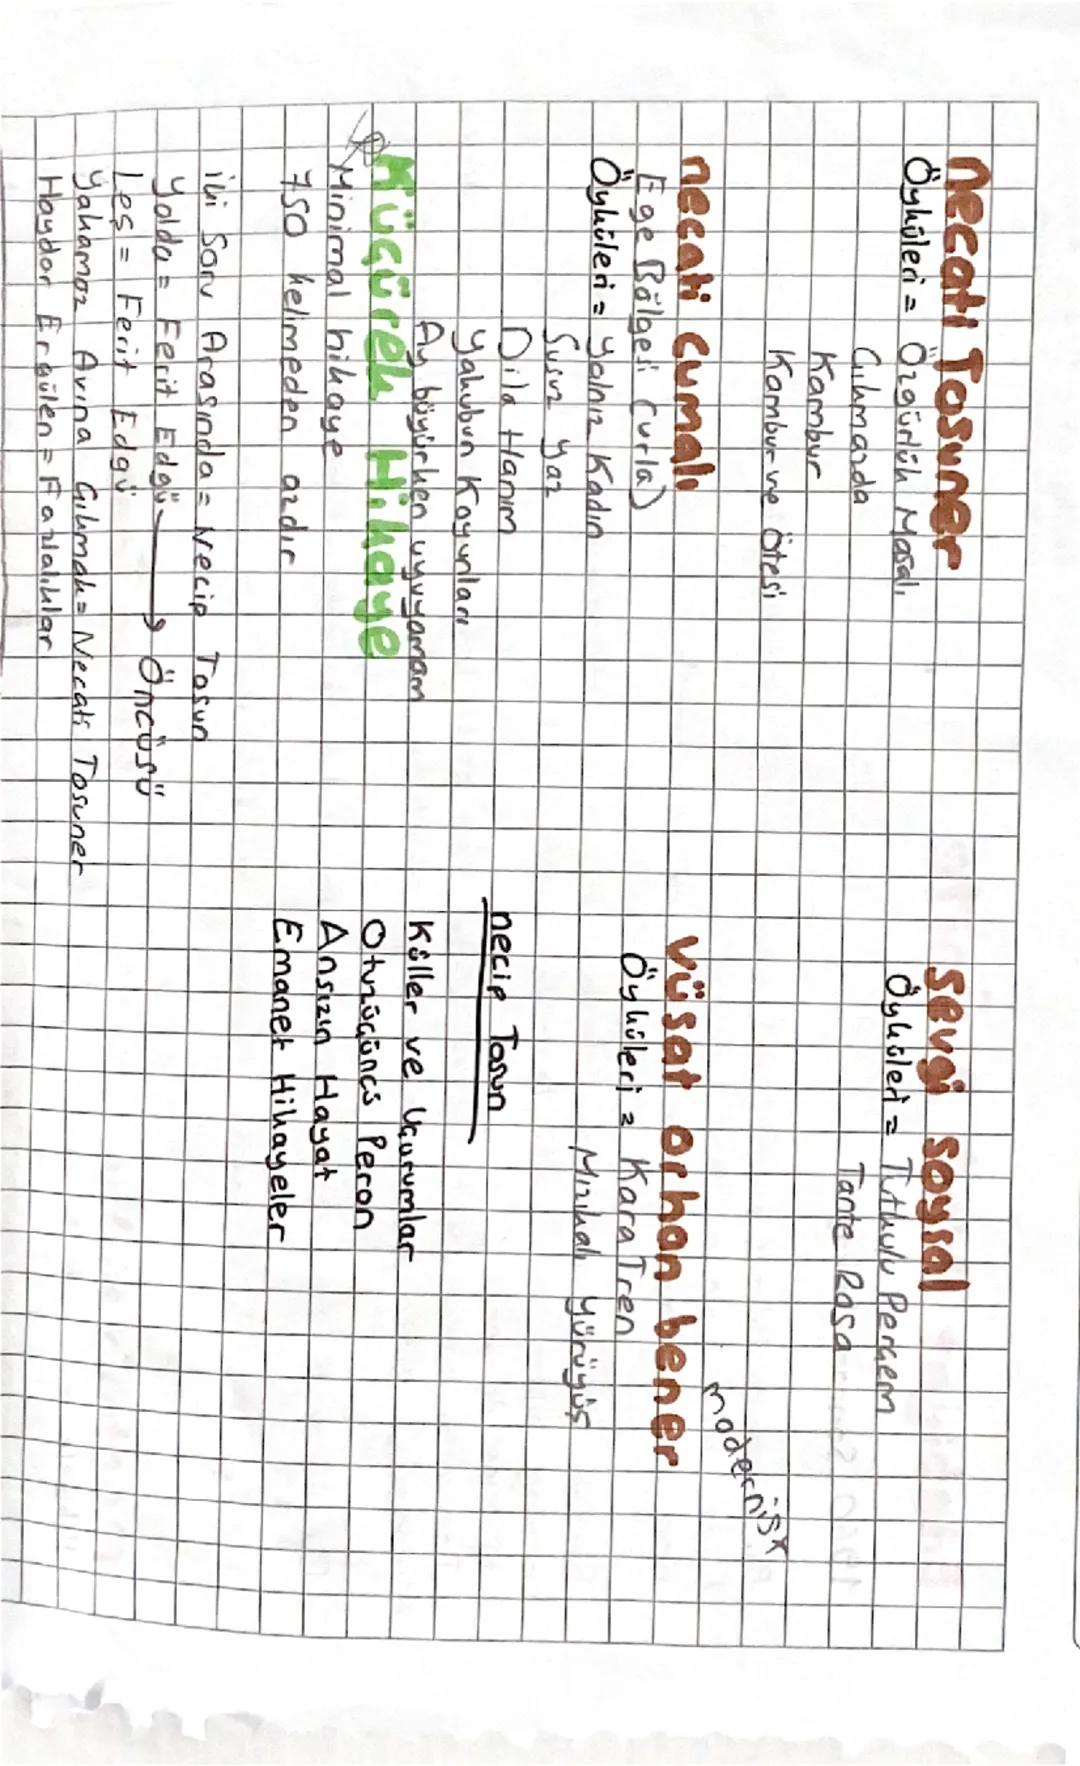 Necati Tosuner
Öyküleri = Özgürlük Masalı
Çıkmazda
Kambur
Kambur ve Ötesi
necati cumalı
Ege Bölgesi (urla)
Öyküleri = Yalnız Kadın
Susuz yaz
Dila Hanım
Yakubun Koyunları
Ay büyürken uyuyamam
Küçürek Hikaye
Minimal hikaye
750 kelimeden azdır
iki Soru Arasında = Necip Tosun
Yolda = Ferit Edgü → Öncüsü
Leş = Ferit Edgü
Yakamoz Avına Çıkmak = Necati Tosuner
Haydar Ergülen = Fazlalıklar
sevgi soysal
Öyküleri = Tutkulu Perçem
Tante Rosa
modernist
vüsat orhan bener
Öyküleri = Kara Tren
Mızıkalı yürüyüş
necip Tosun
Küller ve Uçurumlar
Otuzüçüncü Peron
Ansızın Hayat
Emanet Hikayeler